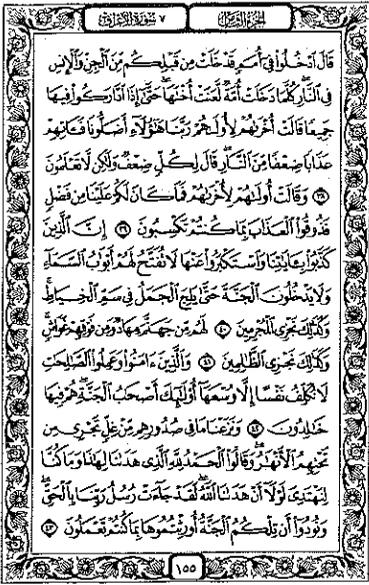 الجزء الثامن
٧ سورة الأعراف
قَالَ ٱدْخُلُوا۟ فِىٓ أُمَمٍ قَدْ خَلَتْ مِن قَبْلِكُم مِّنَ ٱلْجِنِّ وَٱلْإِنسِ
فِى ٱلنَّارِ كُلَّمَا دَخَلَتْ أُمَّةٌ لَّعَنَتْ أُخْتَهَا حَتَّىٰٓ إِذَا ٱدَّارَكُوا۟ فِيهَا
جَمِيعًا قَالَتْ أُخْرَىٰهُمْ لِأُولَىٰهُمْ رَبَّنَا هَٰٓؤُلَآءِ أَضَلُّونَا فَـَٔاتِهِمْ
عَذَابًا ضِعْفًا مِّنَ ٱلنَّارِ قَالَ لِكُلٍّ ضِعْفٌ وَلَٰكِن لَّا تَعْلَمُونَ
٣٨ وَقَالَتْ أُولَىٰهُمْ لِأُخْرَىٰهُمْ فَمَا كَانَ لَكُمْ عَلَيْنَا مِن فَضْلٍ
فَذُوقُوا۟ ٱلْعَذَابَ بِمَا كُنتُمْ تَكْسِبُونَ ٣٩ إِنَّ ٱلَّذِينَ
كَذَّبُوا۟ بِـَٔايَٰتِنَا وَٱسْتَكْبَرُوا۟ عَنْهَا لَا تُفَتَّحُ لَهُمْ أَبْوَٰبُ ٱلسَّمَآءِ
وَلَا يَدْخُلُونَ ٱلْجَنَّةَ حَتَّىٰ يَلِجَ ٱلْجَمَلُ فِى سَمِّ ٱلْخِيَاطِ
وَكَذَٰلِكَ نَجْزِى ٱلْمُجْرِمِينَ ٤٠ لَهُم مِّن جَهَنَّمَ مِهَادٌ وَمِن فَوْقِهِمْ غَوَاشٍ
وَكَذَٰلِكَ نَجْزِى ٱلظَّٰلِمِينَ ٤١ وَٱلَّذِينَ ءَامَنُوا۟ وَعَمِلُوا۟ ٱلصَّٰلِحَٰتِ
لَا نُكَلِّفُ نَفْسًا إِلَّا وُسْعَهَآ أُو۟لَٰٓئِكَ أَصْحَٰبُ ٱلْجَنَّةِ هُمْ فِيهَا
خَٰلِدُونَ ٤٢ وَنَزَعْنَا مَا فِى صُدُورِهِم مِّنْ غِلٍّ تَجْرِى مِن
تَحْتِهِمُ ٱلْأَنْهَٰرُ وَقَالُوا۟ ٱلْحَمْدُ لِلَّهِ ٱلَّذِى هَدَىٰنَا لِهَٰذَا وَمَا كُنَّا
لِنَهْتَدِىَ لَوْلَآ أَنْ هَدَىٰنَا ٱللَّهُ لَقَدْ جَآءَتْ رُسُلُ رَبِّنَا بِٱلْحَقِّ
وَنُودُوٓا۟ أَن تِلْكُمُ ٱلْجَنَّةُ أُورِثْتُمُوهَا بِمَا كُنتُمْ تَعْمَلُونَ ٤٣
١٥٥